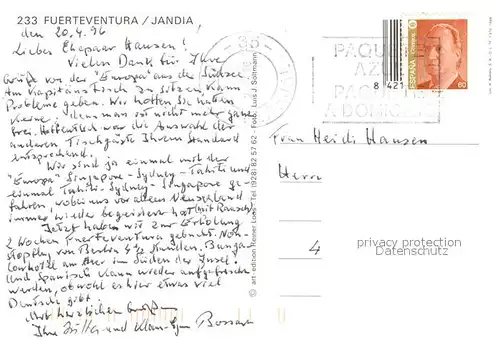 233 FUERTEVENTURA / JANDIA
den 20.4.96
Liebes Ehepaar Hansen!
Vielen Dank für Ihre
Grüße von der "Europa" aus der Südsee.
Am Kapitänstisch zu sitzen kann
Probleme geben. Wir hatten Sie haben
keine, denn man ist nicht mehr ganz
frei. Hoffentlich war die Auswahl der
anderen Tischgäste Ihrem Standard
entsprechend.
Wir sind ja einmal mit der
"Europa" Singapore-Sydney-Tahiti und
einmal Tahiti-Sydney-Singapore ge-
fahren, wobei uns vor allem Neuseeland
immer wieder begeistert hat
Jetzt haben wir zur Erholung
2 Wochen Fuerteventura gebucht. Non-
stopflug von Berlin 4½ Stunden. Bunga-
lowhotel am Meer im Süden der Insel.
Und Spanisch kann wieder aufgefrischt
werden, obwohl es hier etwas viel
Deutsche gibt!
Mit herzlichen Grüßen
Ihre und Klaus
© art - edition Reiner Loos - Tel (928) 82 57 62 - Foto: Luis J. Soltmann
35
PAQUETE
AZUL
PAQUETE
A DOMICILIO
8 421
ESPAÑA
60
Frau Heidi Hansen
Herrn
4
privacy protection
Datenschutz